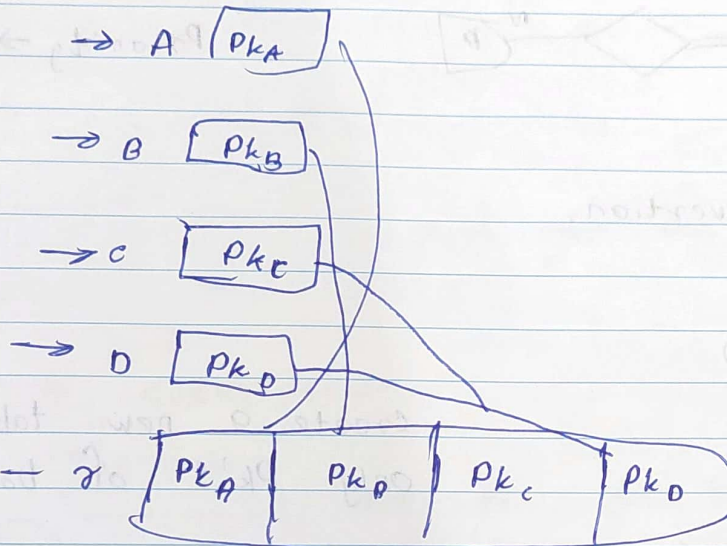 → A PkA
→ B PkB
→ C PkC
→ D PkD
– r PkA PkB PkC PkD